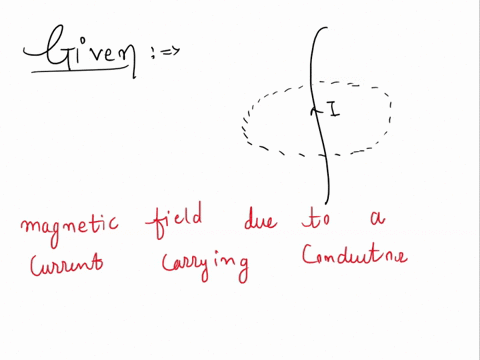 Given :=>
I
magnetic field due to a
Current Carrying